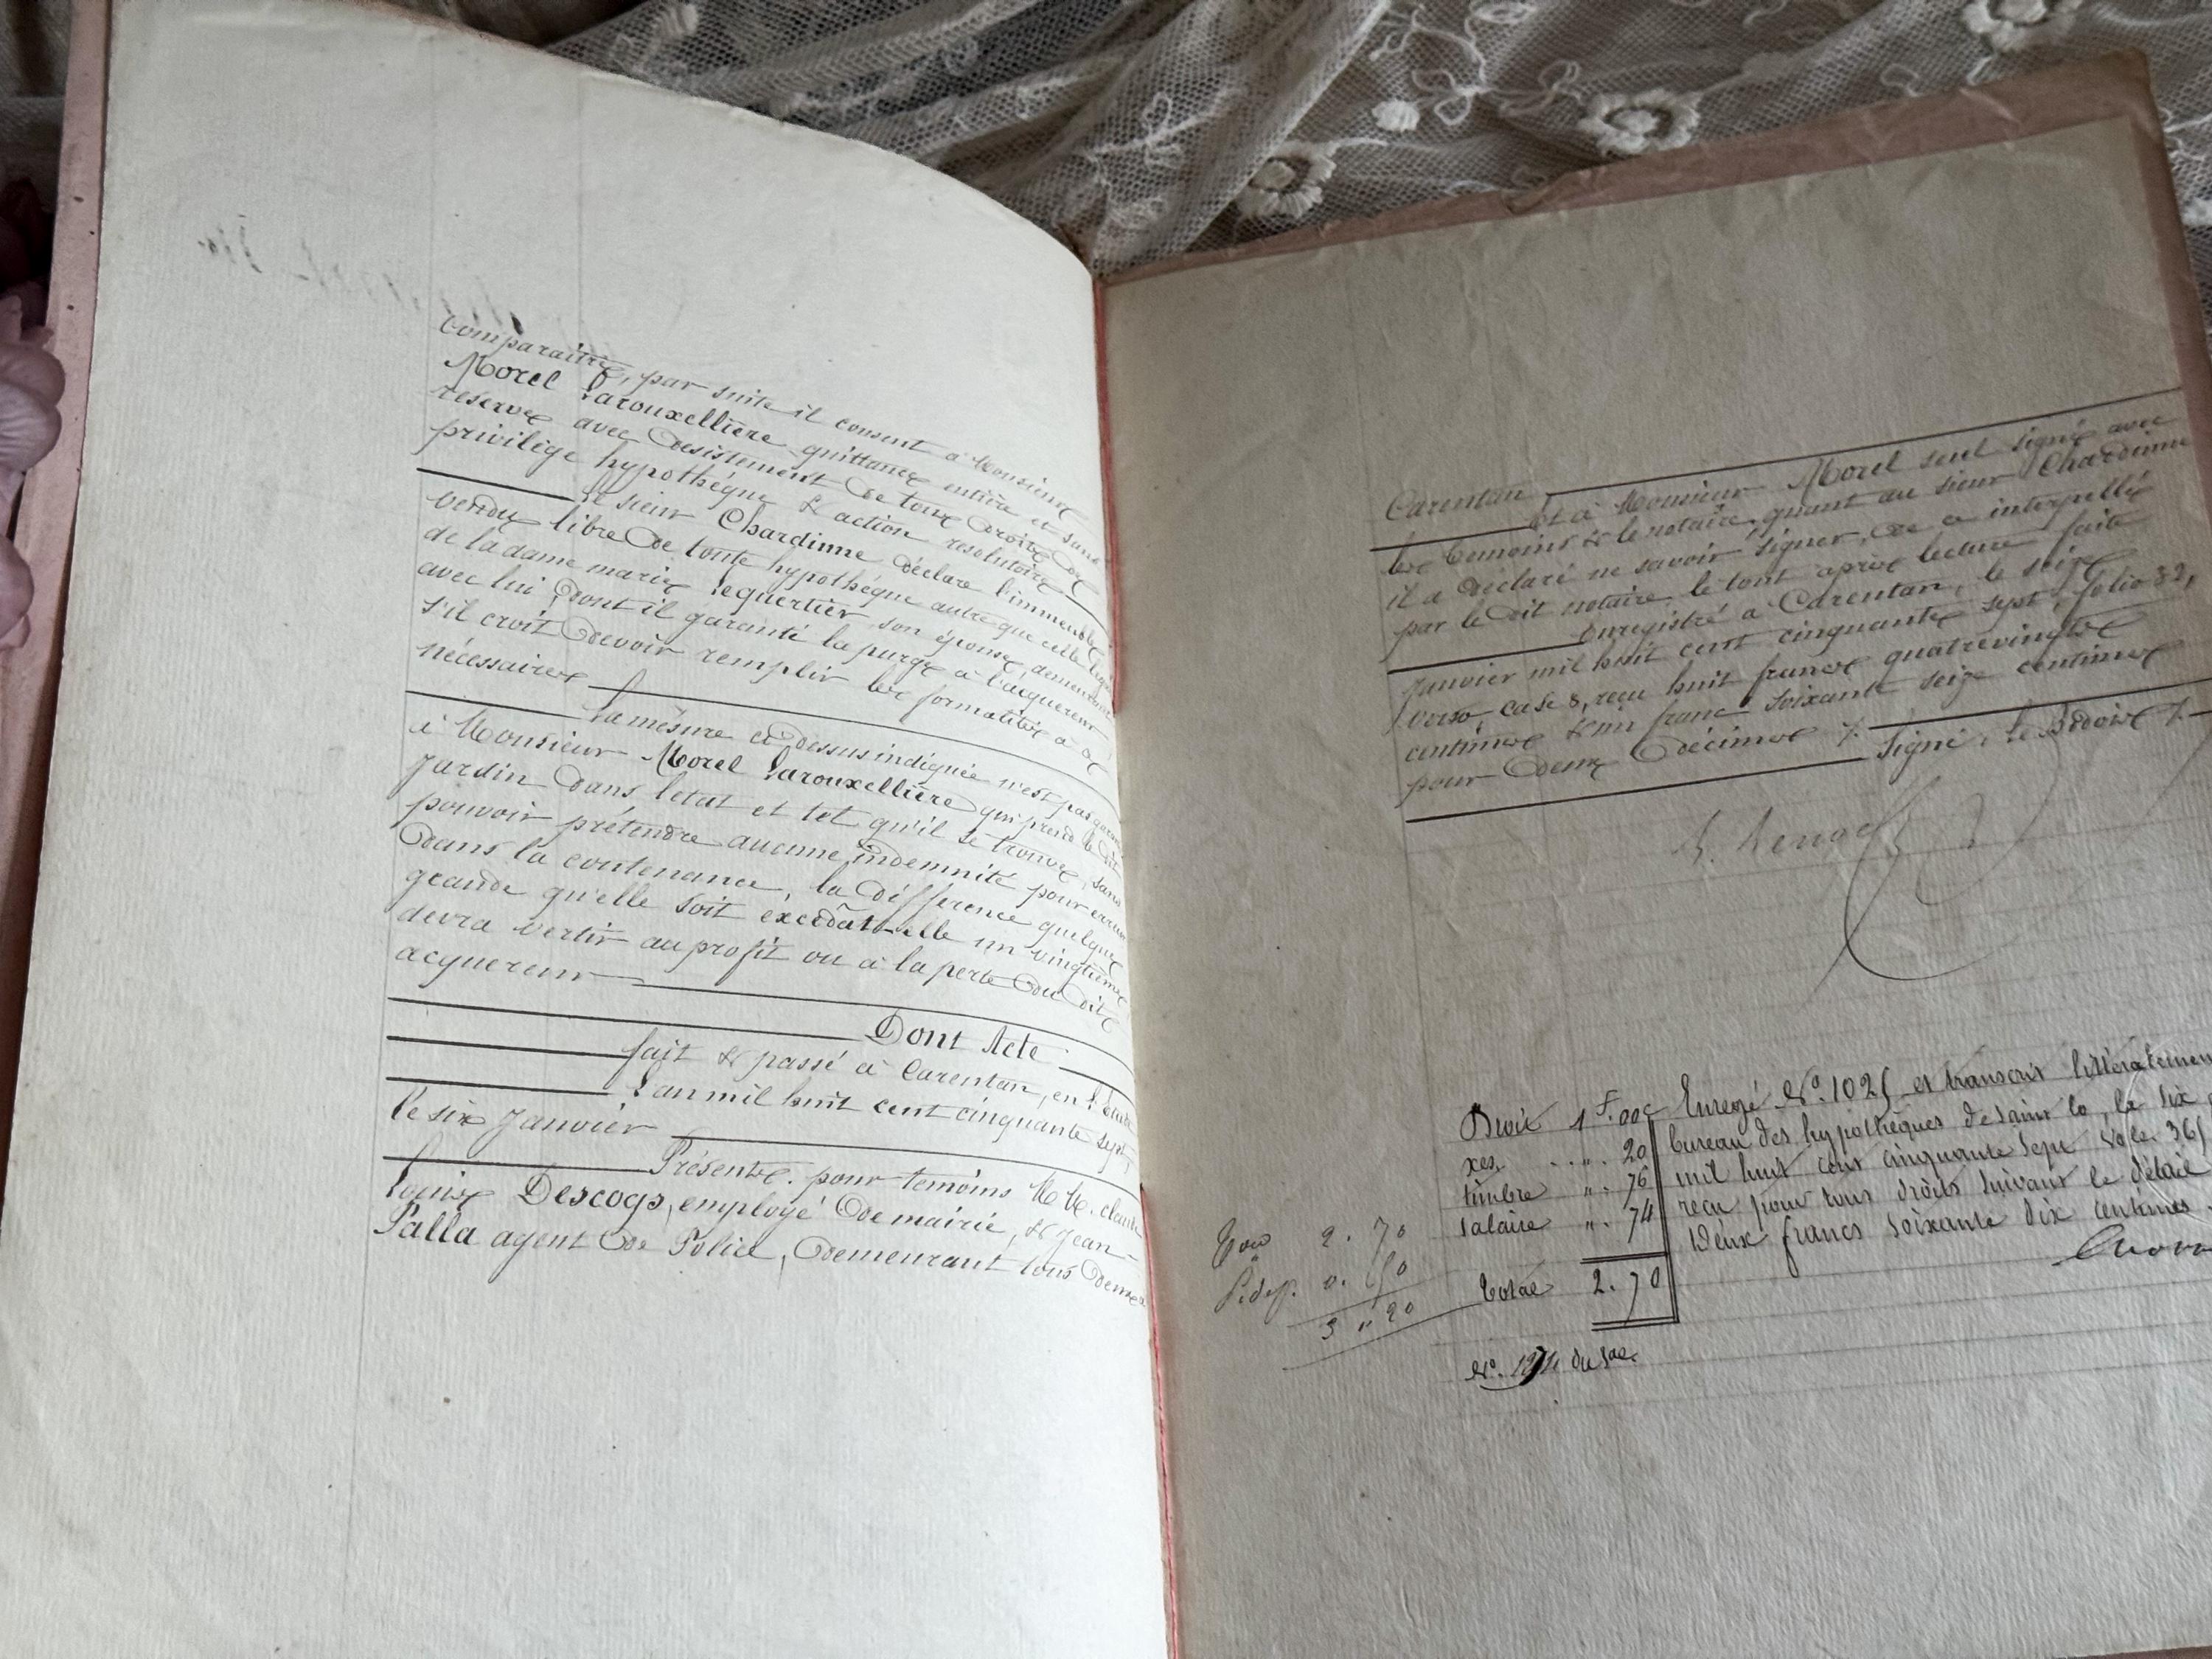 comparaitre, par suite il consent à Monsieur
Morel Larouxellière quittance entière et sans
reserve avec désistement de tous droits de
privilège hypothéque & action résolutoire
Le sieur Chardinne déclare l'immeuble
vendu libre de toute hypothéque autre que celle
de la dame marie Lequertier son épouse, demeurant
avec lui, dont il garanté la purge à l'acquereur
s'il croit devoir remplir les formalités à ce
nécessaires
La mésure ci dessus indiquée n'est pas
à Monsieur Morel Larouxellière qui prend le dit
jardin dans letat et tel qu'il se trouve, sans
pouvoir prétendre aucune indemnité pour erreur
dans la contenance, la différence quelque
grande qu'elle soit éxcedât-elle un vingtième
devra vertir au profit ou à la perte du dit
acquereur
Dont Acte
fait & passé à Carentan, en l'Étude
L'an mil huit cent cinquante sept,
le six Janvier
Présents pour temoins M M. claude
Louis Descoqs, employé de mairie, & Jean-
Palla agent de Police, demeurant tous deux à
Carentan
Et à Monsieur Morel seul signé avec
les temoins & le notaire, quant au sieur Chardinne
il a déclaré ne savoir signer, de ce interpellé
par le dit notaire le tout après lecture faite
Enregistré à Carentan, le seize
Janvier mil huit cent cinquante sept, folio 32,
verso, case 8, reçu huit francs quatrevingts
centimes & un franc soixante seize centimes
pour deux décimes /. Signé, Le Bidois /.
Droit 1 F. 00 c Enregé No. 1025 et transcrit littéralement
xes. " . 20 bureau des hypothèques de saint lo, le six
timbre " . 76 mil huit cent cinquante sept vole. 365
salaire " . 74 reçu pour tous droits suivant le détail
Deux francs soixante dix centimes
Total 2. 70
2. 70
0. 50
3 " 20